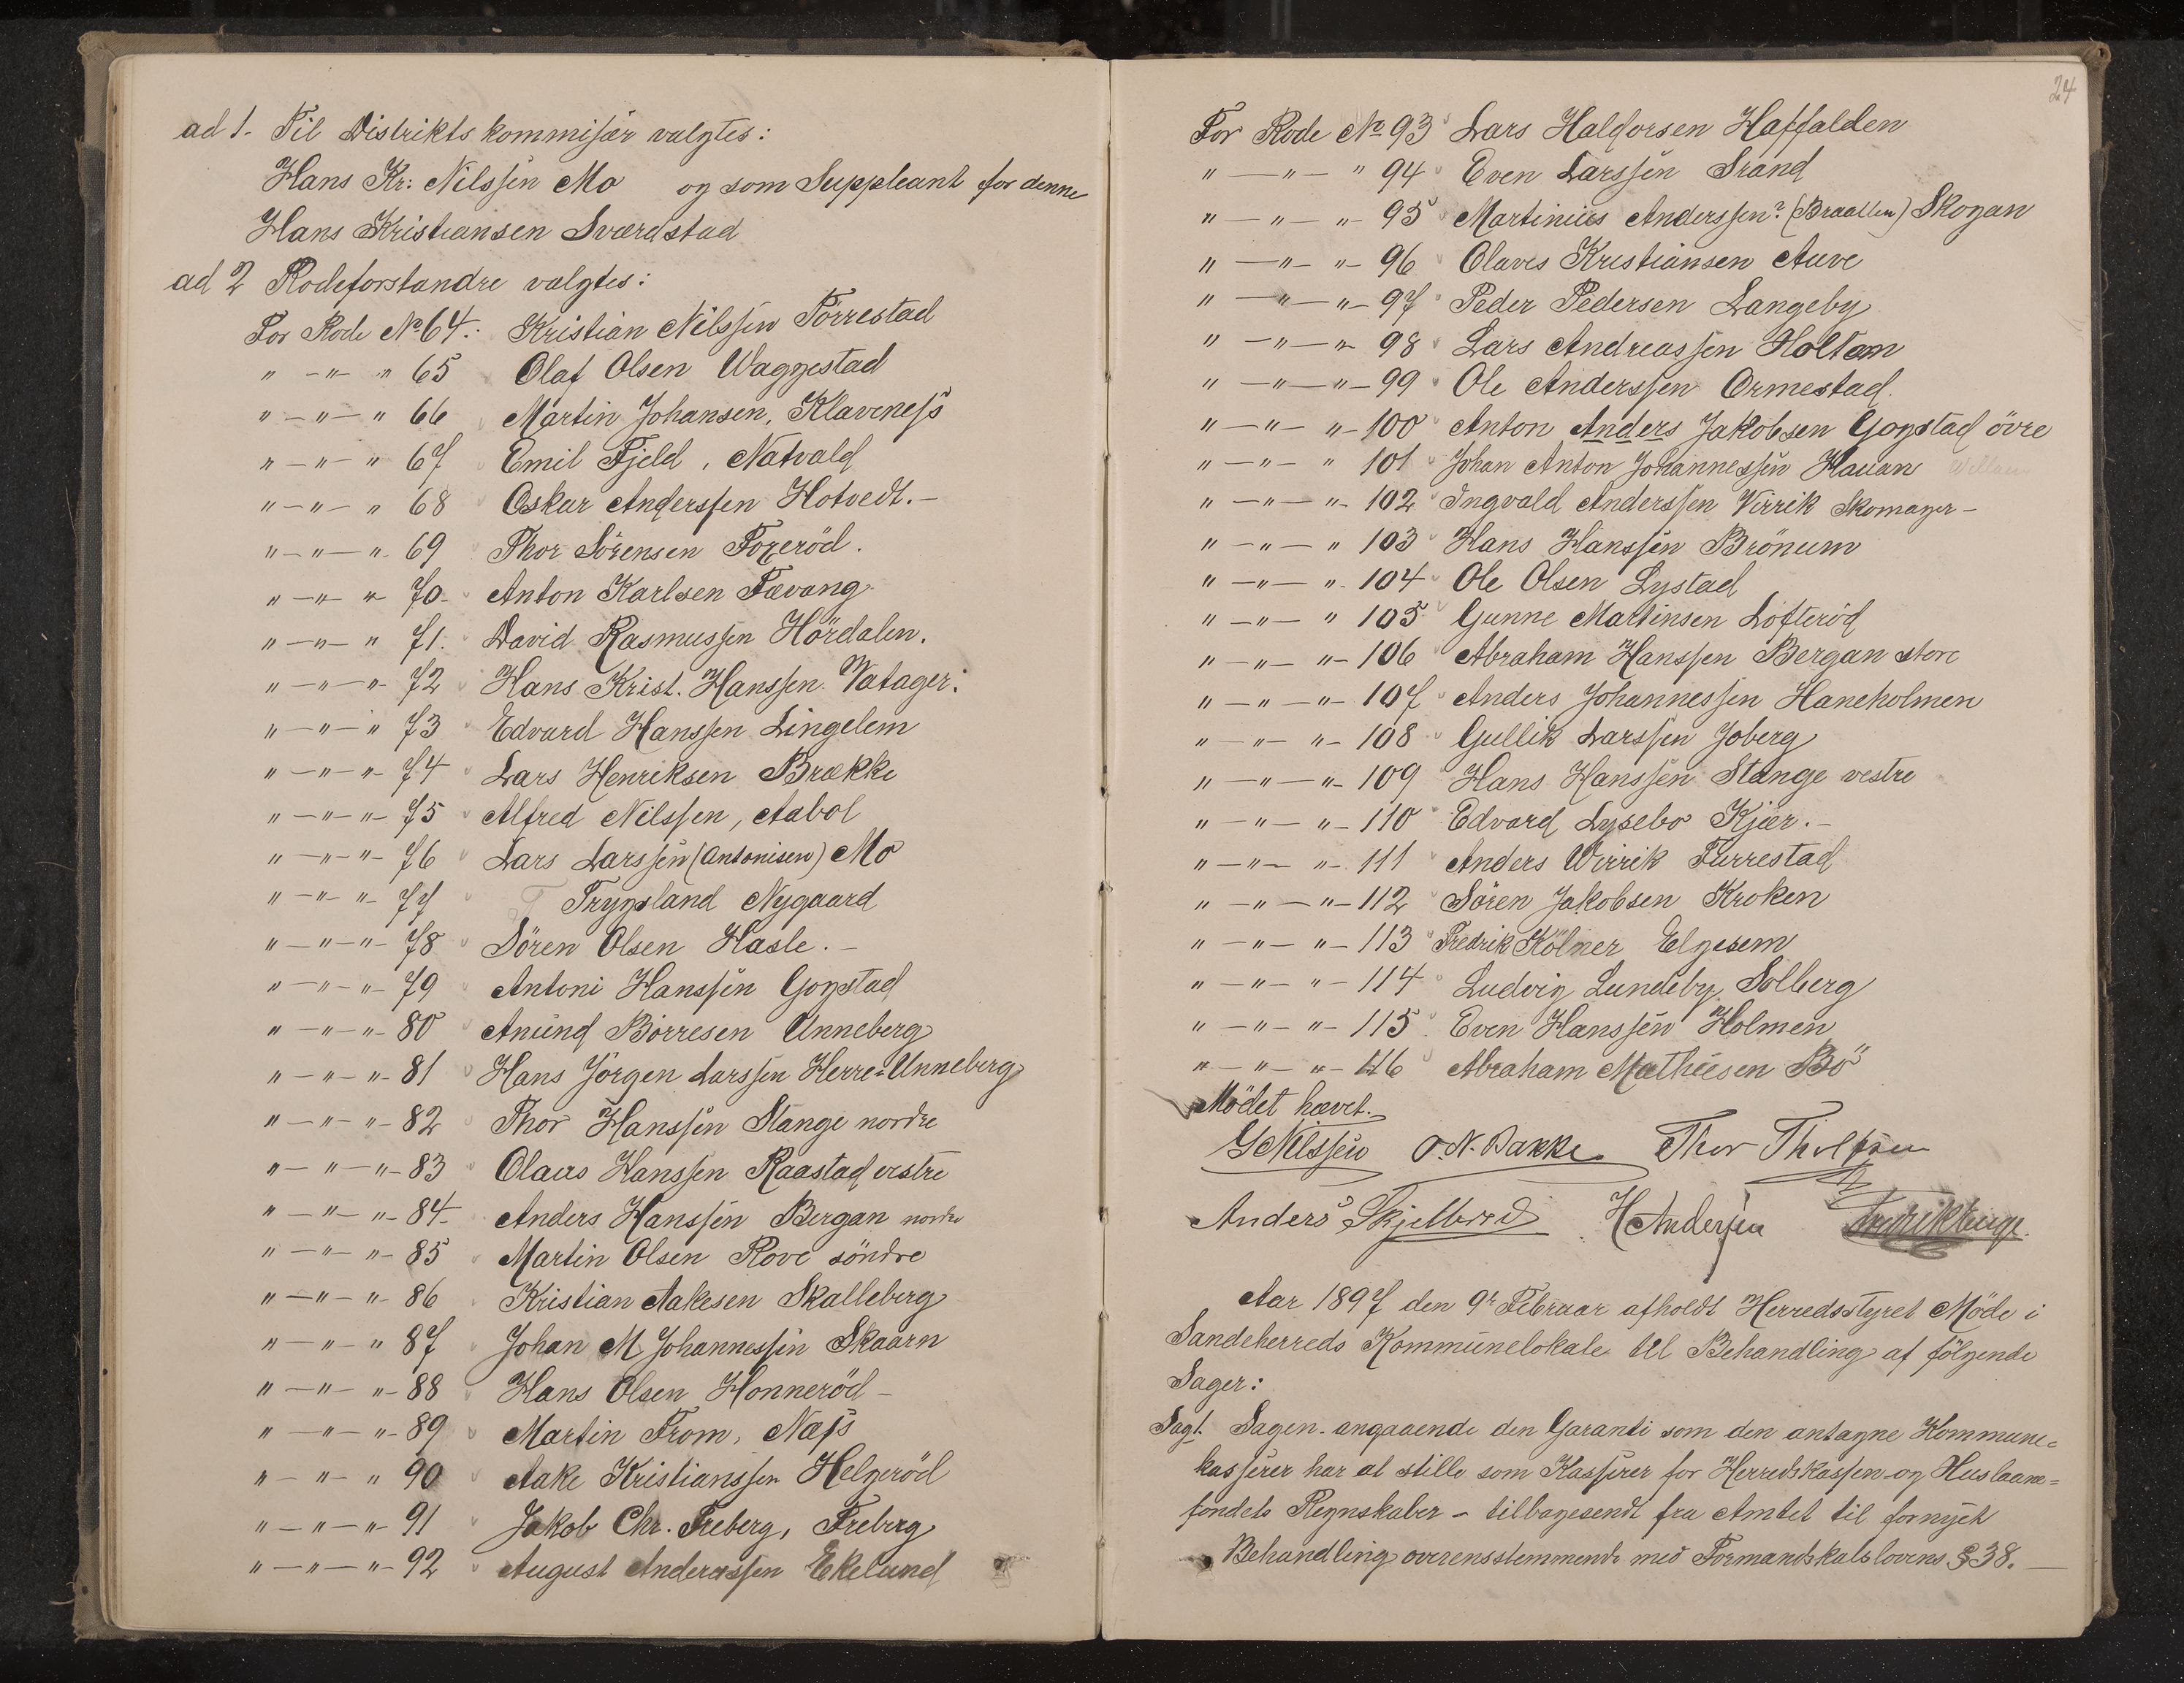 ad 1. Til Distriktskommisær valgtes:
Hans Kr: Nilssen Mo og som Suppleant for denne
Hans Kristiansen Sværdstad
ad 2 Rodeforstandre valgtes:
For Rode No 64.: Kristian Nilssen Törrestad
" —"— " 65 Olaf Olsen Waggestad
" —"— " 66 Martin Johansen, Klavenejs
" —"— " 67 Emil Fjeld, Natvald
" —"— " 68 Oskar Anderssen Hotvedt.—
" —"— " 69 Thor Sörensen Fozeröd.
" —"— " 70 Anton Karlsen Fævang
" —"— " 71. David Rasmussen Hördalen.
" —"— " 72 Hans Krist. Hanssen Vatager:
" —"— " 73 Edvard Hanssen Lingelem
" —"— " 74 Lars Henriksen Brække
" —"— " 75 Alfred Nilssen, Aabol
" —"— " 76 Lars Larssen (Antonisen) Mo
" —"— " 77 Trygsland Nygaard
" —"— " 78 Sören Olsen Hasle.—
" —"— " 79 Antoni Hanssen Gogstad
" —"— " 80 Anund Börresen Unneberg
" —"— " 81 Hans Jörgen Larssen Herre=Unneberg
" —"— " 82 Thor Hanssen Stange nordre
" —"— " 83 Olaus Hanssen Raastad vestre
" —"— " 84 Anders Hanssen Bergan nordre
" —"— " 85 Martin Olsen Rove söndre
" —"— " 86 Kristian Aakesen Skalleberg
" —"— " 87 Johan M Johannessen Skaarn
" —"— " 88 Hans Olsen Honneröd—
" —"— " 89 Martin From, Næss
" —"— " 90 Aake Kristianssen Helgeröd
" —"— " 91 Jakob Chr. Freberg, Freberg
" —"— " 92 August Anderassen Ekelund
24
For Rode No 93 Lars Halforsen Haffalden
" —"— " 94 Even Larssen Srand
" —"— " 95 Martinius Anderssen (Braatten) Skogan
" —"— " 96 Olaves Kristiansen Auve
" —"— " 97 Peder Pedersen Langeby
" —"— " 98 Lars Andreassen Holtan
" —"— " 99 Ole Anderssen Ormestad.
" —"— " 100 Anton Anders Jakobsen Gogstad övre
" —"— " 101 Johan Anton Johannessen Hauan
" —"— " 102 Ingvald Anderssen Virrik Skomager—
" —"— " 103 Hans Hanssen Brönum
" —"— " 104 Ole Olsen Lystad
" —"— " 105 Gunne Martinsen Lofteröd
" —"— " 106 Abraham Hanssen Bergan store
" —"— " 107 Anders Johannessen Haneholmen
" —"— " 108 Gullik Larssen Joberg
" —"— " 109 Hans Hanssen Stange vestre
" —"— " 110 Edvard Lysebo Kjær.—
" —"— " 111 Anders Wirrik Furrestad
" —"— " 112 Sören Jakobsen Kroken
" —"— " 113 Fredrik Kölner Elgesem
" —"— " 114 Ludvig Lundeby Solberg
" —"— " 115 Even Hanssen Holmen
" —"— " 116 Abraham Mathiesen Bö
Mödet hævet.
G Nilssen O. N. Bakke Thor Tholfsen
Anders Skjelbred H Andersen Fredrik Bugge.
Aar 1897 den 9r Februar afholdt Herredsstyret Möde i
Sandeherreds Kommunelokale til Behandling af fölgende
Sager:
Sag 1. Sagen angaaende den Garanti som den antagne Kommune=
kasserer har at stille som Kasserer for Herredskassen og Huslaane=
fondets Regnskaber – tilbagesendt fra Amtet til fornyet
Behandling overensstemmende med Formandskabslovens § 38.—